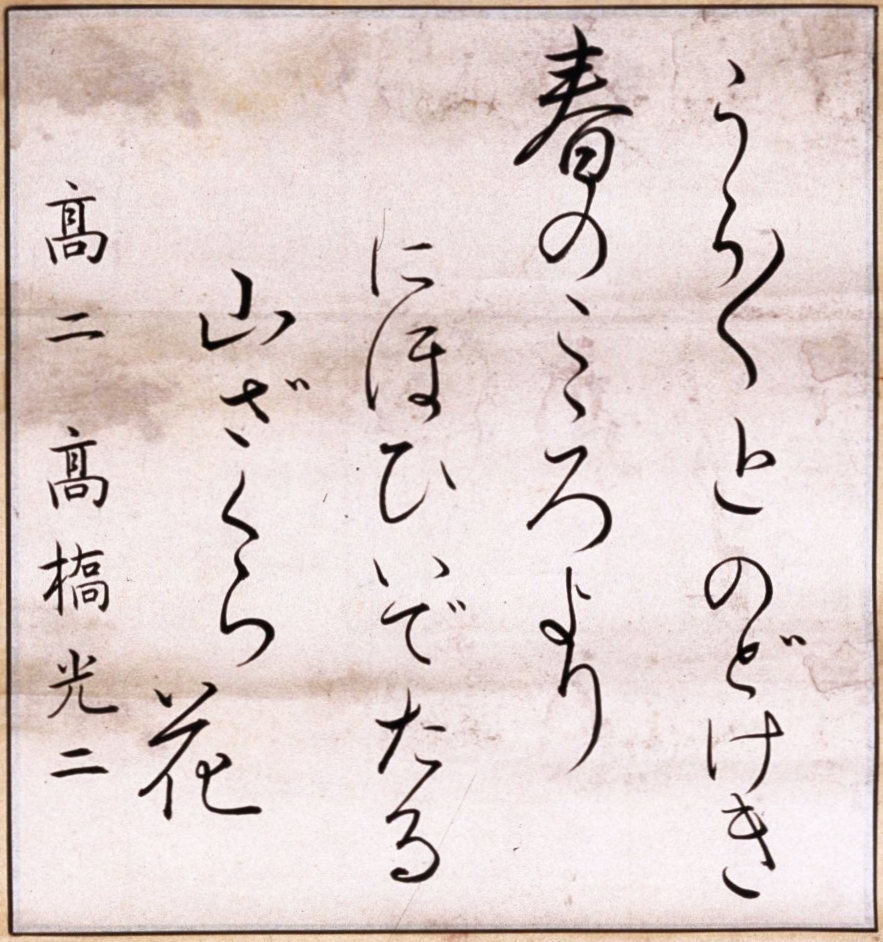 うら〱とのどけき
春のこゝろより
にほひいでたる
山ざくら花
髙二 髙橋光二